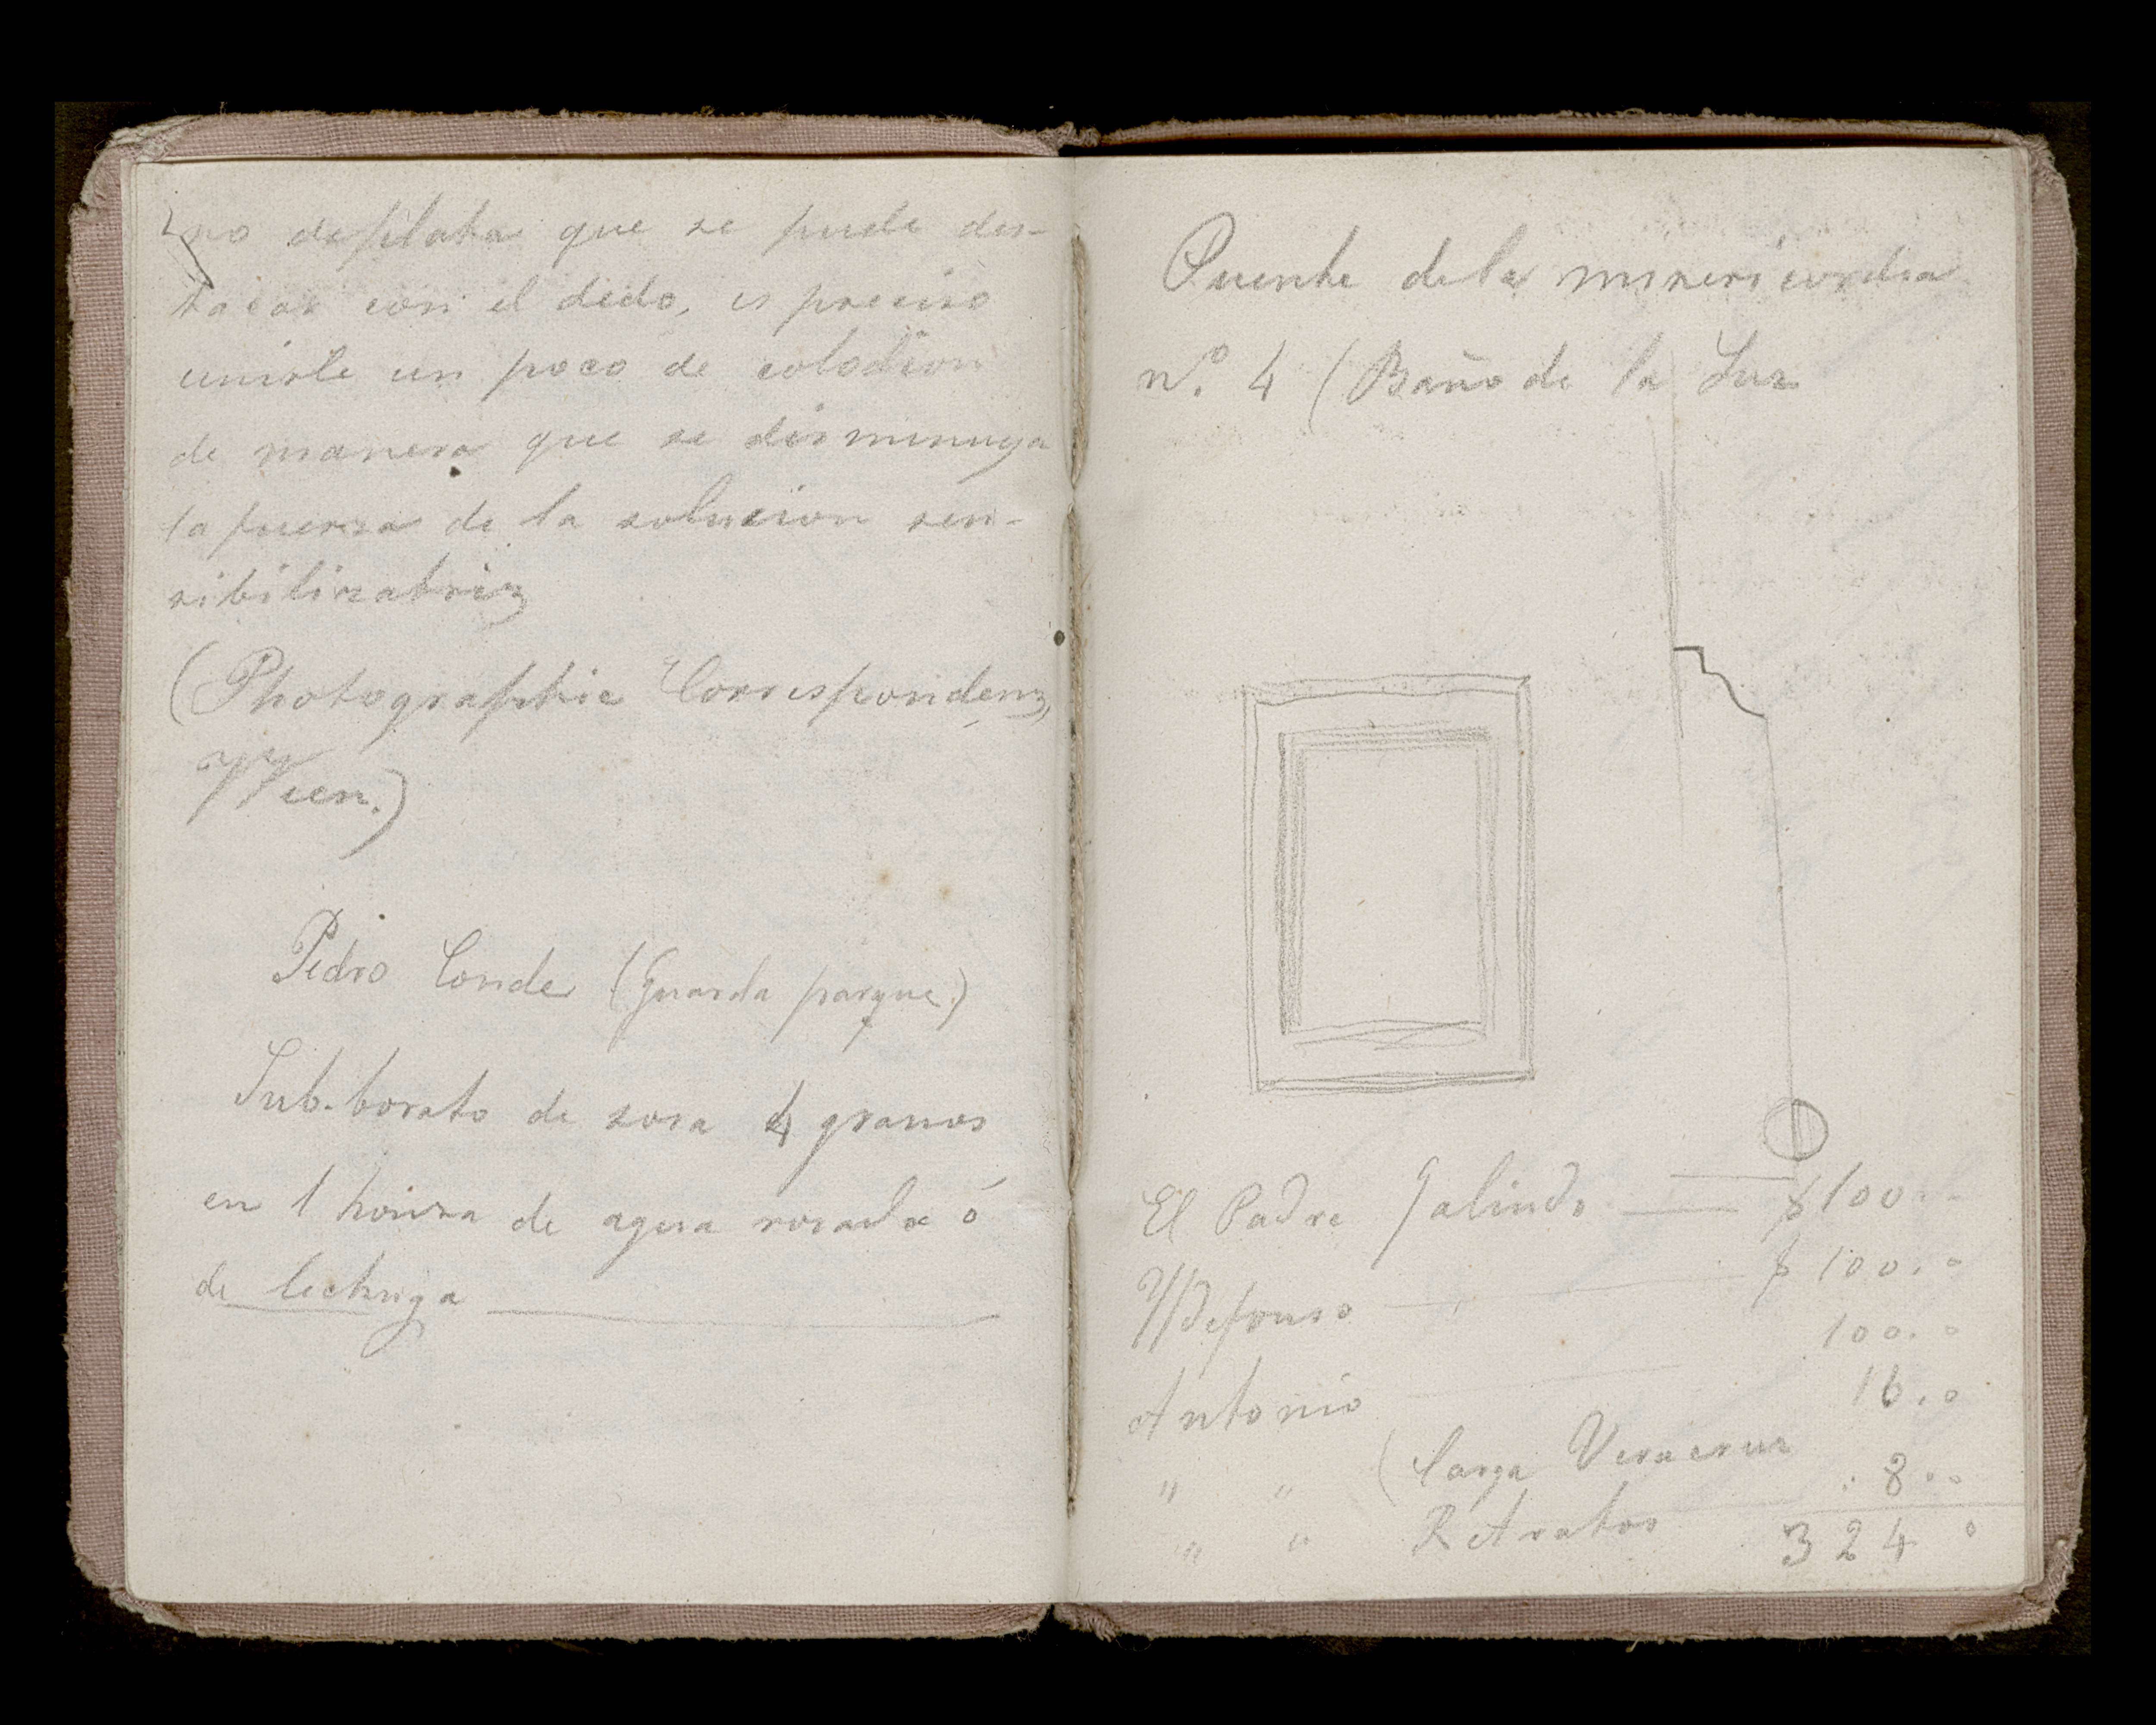 no de plata que se puede des-
tacar con el dedo, es preciso
unirle un poco de colodion
de manera que se disminuya
la fuerza de la solucion sen-
sibilizatriz
(Photographie Correspondenz,
Wien.)
Pedro Conde (Guarda parque)
Sub-borato de sosa 4 granos
en 1 honza de agua rosada ó
de lechuga
Puente de la misericordia
nº. 4 (Baño de la Luz
El Padre Galindo $100..
Yldefonso $100..
100..
Antonio 16..
" " (Carga Veracruz
. 8..
" " Retratos
324